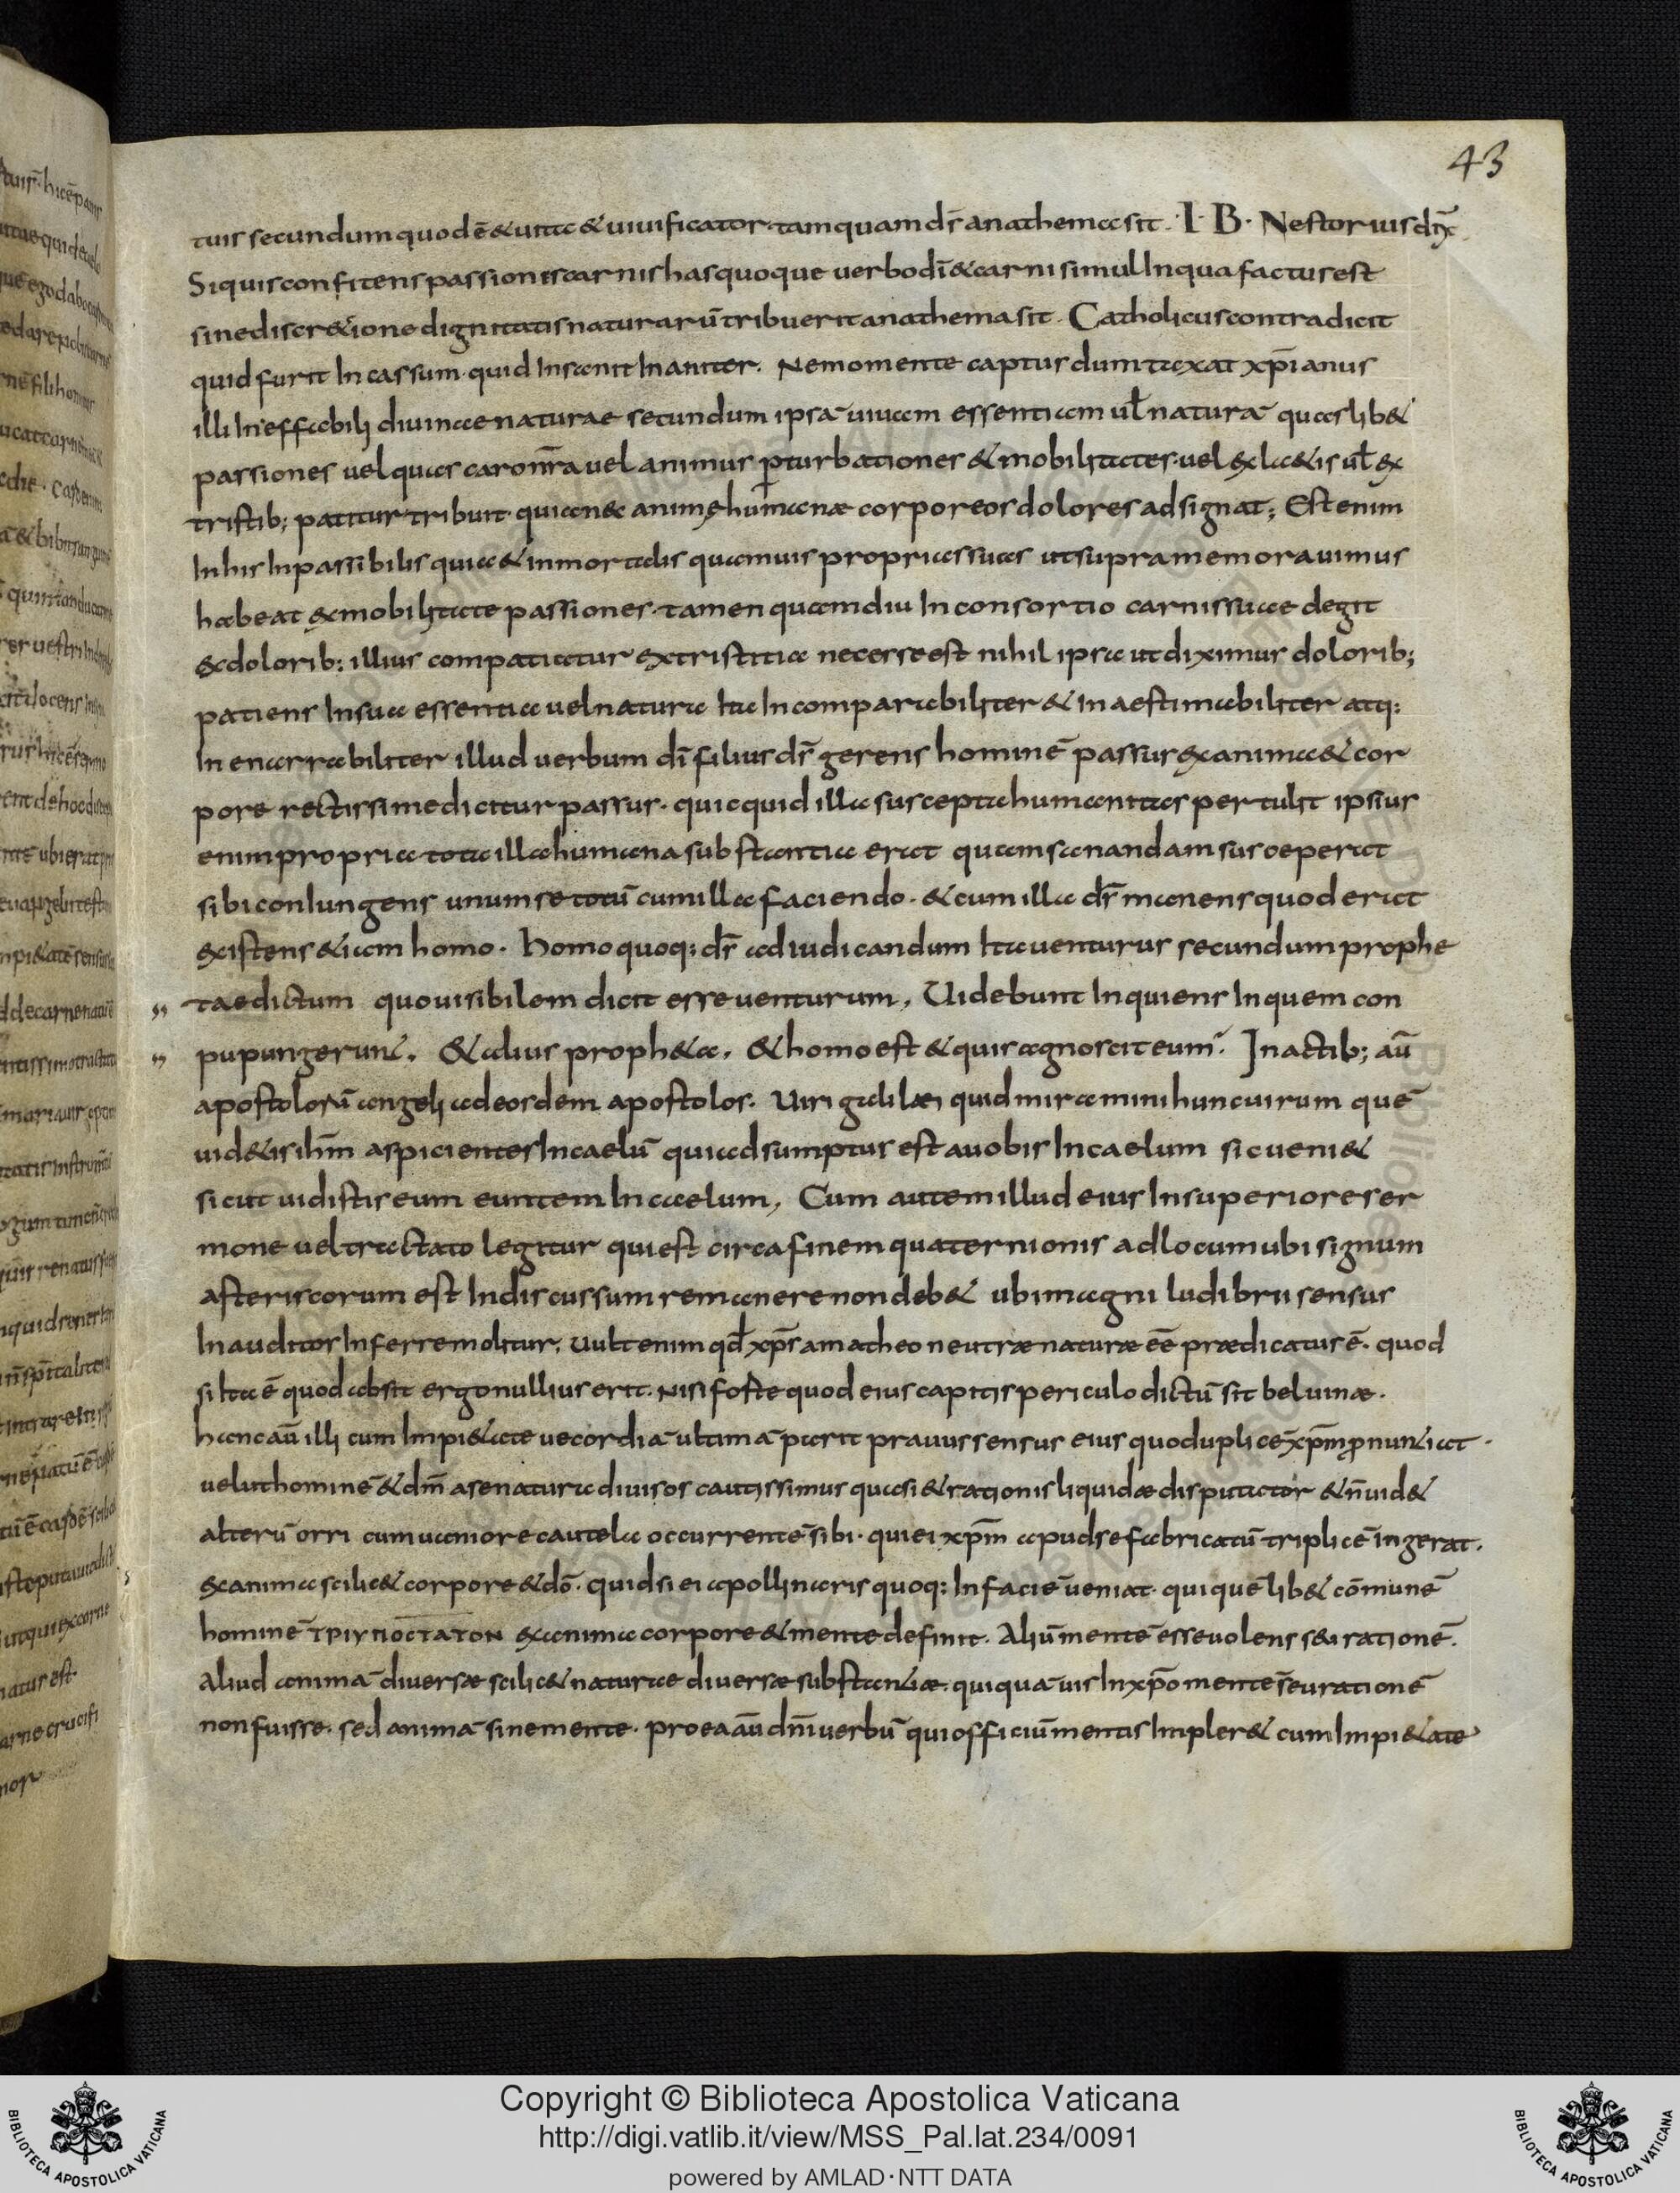 43
tuis secundum quod ē & uita & uiuificator tamquam d̄s anathema sit. I B. Nestorius dix̄
Si quis confitens passiones carnis has quoque uerbo dī & carni simul In qua factus est
sine discr&ione dignitatis naturarū tribuerit anathema sit. Catholicus contradicit
quid furit In cassum quid Insanit Inaniter. Nemo mente captus dumtaxat xp̄ianus
illi Ineffabili diuinae naturae secundum ipsā uiuam essentiam ul̄ naturā quaslib&
passiones uel quas caro nr̄a uel animus p̲turbationes & mobilitates uel ex la&is ul̄ ex
tristib; patitur tribuit qui an ec animę humanæ corporeos dolores adsignat; Est enim
In his Inpassibilis quia & inmortalis quamuis proprias suas ut supra memorauimus
habeat ex mobilitate passiones tamen quamdiu In consortio carnis suae degit
ex dolorib: illius compatiatur ex tristitia necesse est nihil ipsa ut diximus dolorib;
patiens In sua essentia uel natura Ita Incomparabiliter & Inaestimabiliter atq:
Inenarrabiliter illud uerbum dī filius d̄s gerens hominē passus ex anima & cor
pore rectissime dicitur passus. quicquid illa suscepta humanitas pertulit ipsius
enim propria tota illa humana substantia erat quam sanandam susceperat
sibi conIungens unum se totū cum illa faciendo. & cum illa d̄s manens quod erat
existens &iam homo. homo quoq: d̄s ad iudicandum Ita uenturus secundum prophe
„ tae dictum quo uisibilem dicit esse uenturum, Uidebunt Inquiens In quem con
„ pupungerunt. & alius proph&a. & homo est & quis agnoscit eum. In actib; aū
apostolorū angeli ad eosdem apostolos. Uiri galilæi quid miramini hunc uirum quē
uid&is ihm̄ aspicientes In caelū qui adsumptus est a uobis In caelum sic ueni&
sicut uidistis eum euntem In caelum, Cum autem illud eius In superiore ser
mone uel tractato legitur qui est circa finem quaternionis ad locum ubi signum
asteriscorum est Indiscussum remanere non deb& ubi magni ludibrii sensus
In auditos Inferre molitur. Uult enim qd̄ xp̄s amatheo neutræ naturæ eē prædicatus ē. quod
si Ita ē quod absit ergo nullius erit. Nisi foste quod eius capitis periculo dictū sit beluinæ.
hanc aū illi cum Impi&ate uecordiā ultimā parit prauus sensus eius quo duplicē xp̄m p̲nuntiat.
uelut hominē & dm̄ a se natura diuisos cautissimus quasi & rationis liquidæ disputator & n̄ uid&
alterū orri cum uaniore cautela occurrentē sibi. qui ei xp̄m apud se fabricatū triplicē ingerat.
ex anima scilic& corpore & dō. quid si ei apollinaris quoq: In faciē ueniat. qui quē lib& cōmunē
hominē ΤΡΙΥΠΟCΤΑΤΟΝ ex anima corpore & mente definit. Aliū mentē esse uolens seu rationē.
Aliud animā diuersæ scilic& naturae diuersæ substantiæ. qui quāuis In xp̄o mentē seu rationē
non fuisse. sed animā sine mente. pro ea aū dn̄i uerbū qui officiū mentis Impler& cum Impi&ate
Copyright © Biblioteca Apostolica Vaticana
http://digi.vatlib.it/view/MSS_Pal.lat.234/0091
powered by AMLAD·NTT DATA
BIBLIOTECA APOSTOLICA VATICANA
BIBLIOTECA APOSTOLICA VATICANA